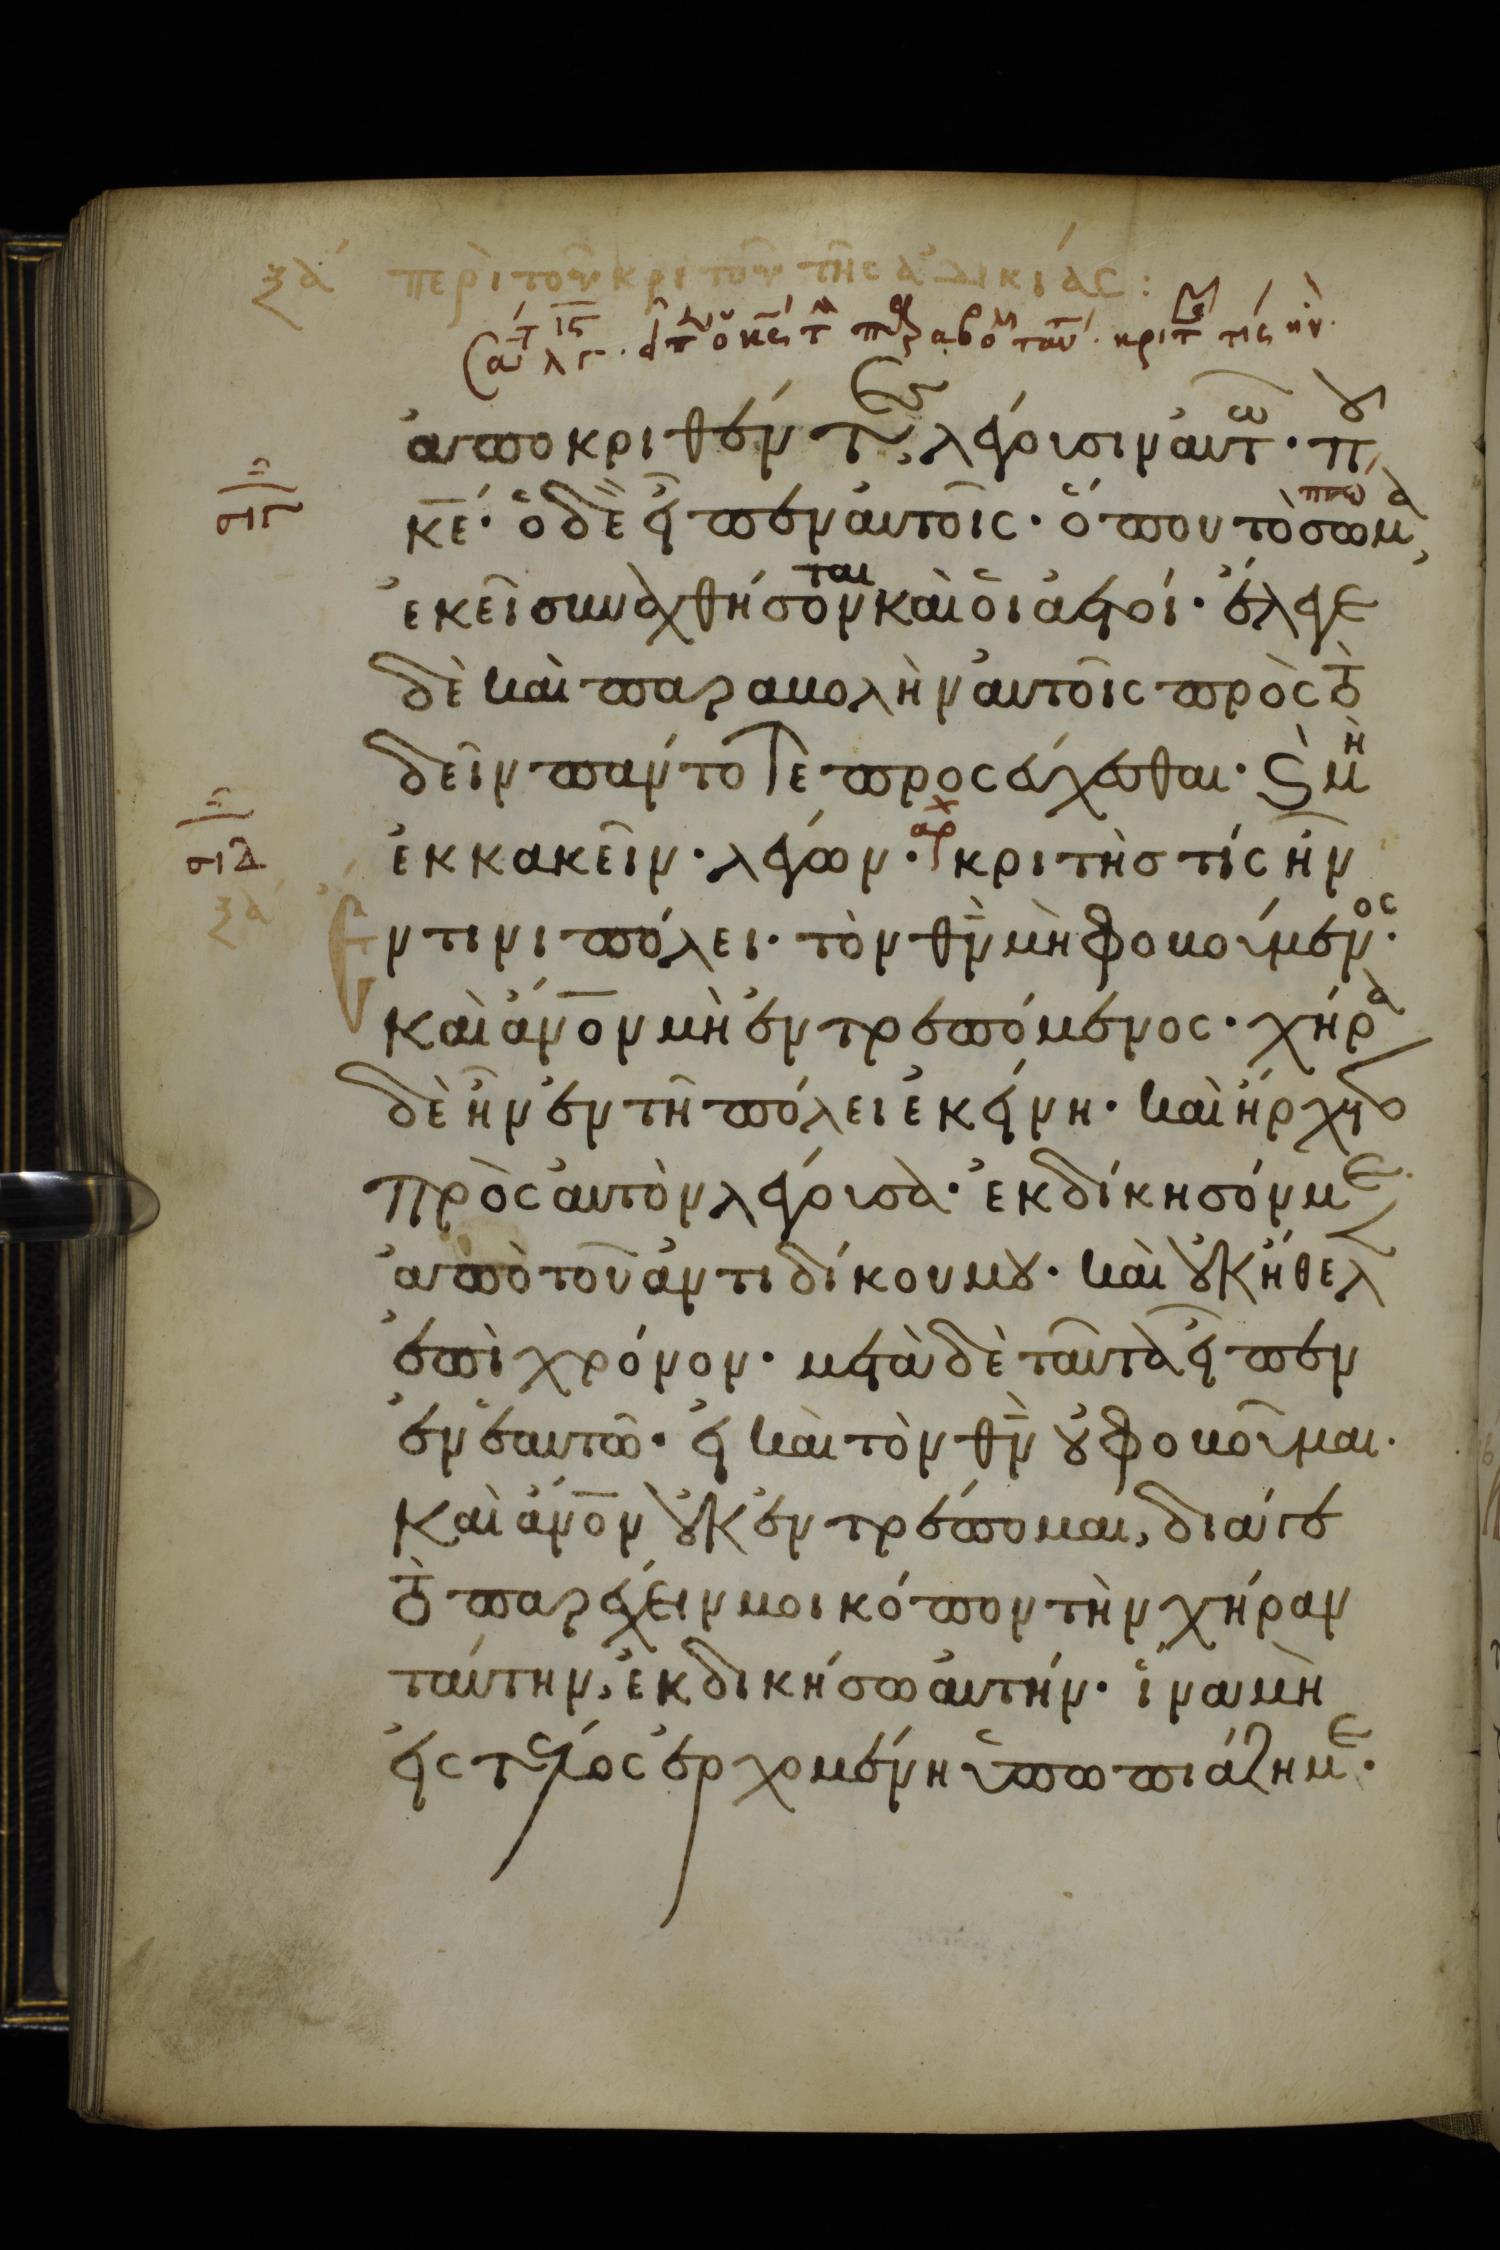 ξα περὶ τοῦ κριτοῦ τῆς ἀδικίας:
ἀποκριθέντες λέγουσιν αὐτῶ· ποῦ
κε̅· ὁ δὲ εἶπεν αὐτοῖς· ὅπου τὸ σῶμα,
πτω
ἐκεῖ συναχθήσονται καὶ οἱ ἀετοί· ἔλεγε
σιγ
δὲ καὶ παραβολὴν αὐτοῖς πρὸς τὸ
δεῖν πάντοτε προσεύχεσθαι· καὶ μὴ
ἐκκακεῖν· λέγων· αρχ κριτής τίς ἦν
σιδ
ξα
ἔν τινι πόλει· τὸν θν̅ μὴ φοβούμενος·
καὶ ἄνον̅ μὴ ἐντρεπόμενος· χήρα
δὲ ἦν ἐν τῆ πόλει ἐκείνη· καὶ ἤρχετο
πρὸς αὐτὸν λέγουσα· ἐκδίκησόν με
ἀπὸ τοῦ ἀντιδίκου μου· καὶ οὐκ ἤθελ
ἐπὶ χρόνον· μετὰ δὲ ταῦτα εἶπεν
ἐν ἑαυτῶ· εἰ καὶ τὸν θν̅ οὐ φοβοῦμαι·
καὶ ἄνον̅ οὐκ ἐντρέπομαι, διά γε
τὸ παρέχειν μοι κόπον τὴν χήραν
ταύτην, ἐκδικήσω αὐτήν· ἵνα μὴ
εἰς τέλος ἐρχομένη ὑποπιάζη με·